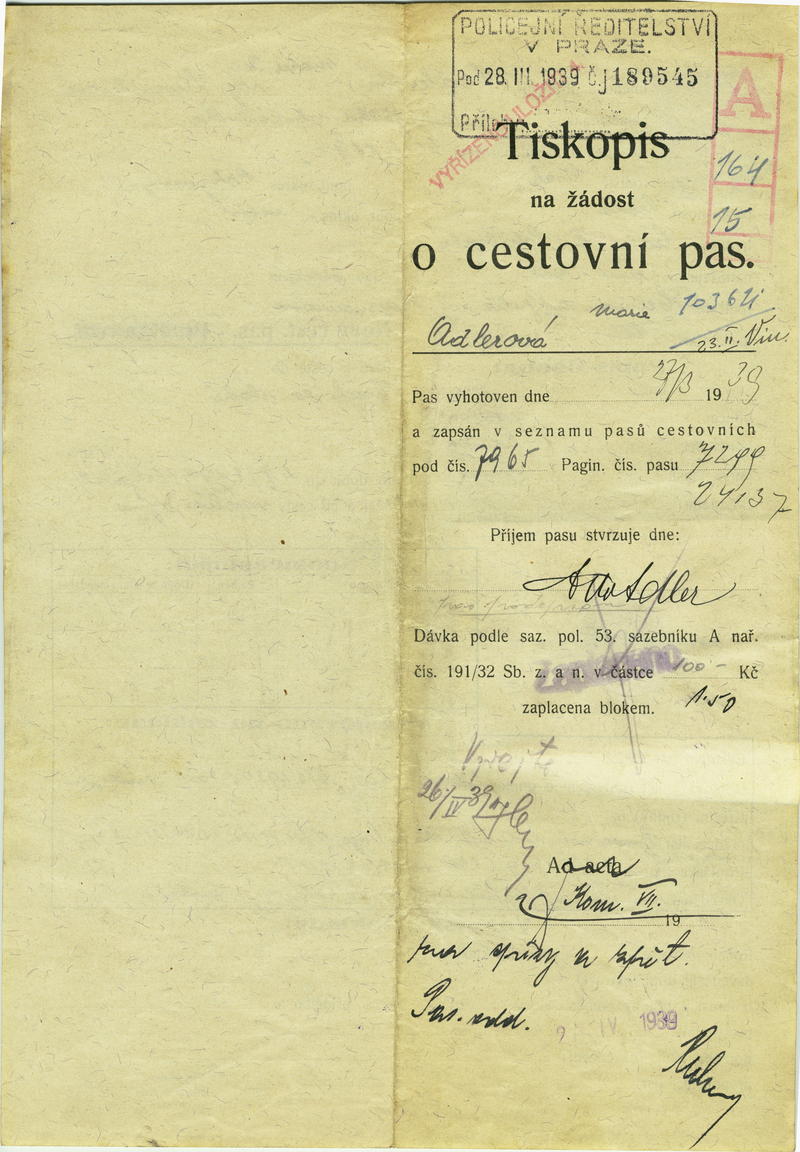 POLICEJNÍ ŘEDITELSTVÍ
V PRAZE.
Pod 28. III. 1939 č.j 189545
Příloh
VYŘÍZENO ULOŽ
A
164
15
Tiskopis
na žádost
o cestovní pas.
Marie 10362
Adlerová 23. II. Vin.
Pas vyhotoven dne 27/3 1939
a zapsán v seznamu pasů cestovních
pod čís. 7965 Pagin. čís. pasu 7299
24137
Příjem pasu stvrzuje dne:
Otto Adler
Dávka podle saz. pol. 53. sazebníku A nař.
čís. 191/32 Sb. z. a n. v částce 100 - Kč
zaplacena blokem. 1·50
26/IV 39
Ad acta
Kom. VII.
19
a zpět.
Pas. odd.
IV. 1939